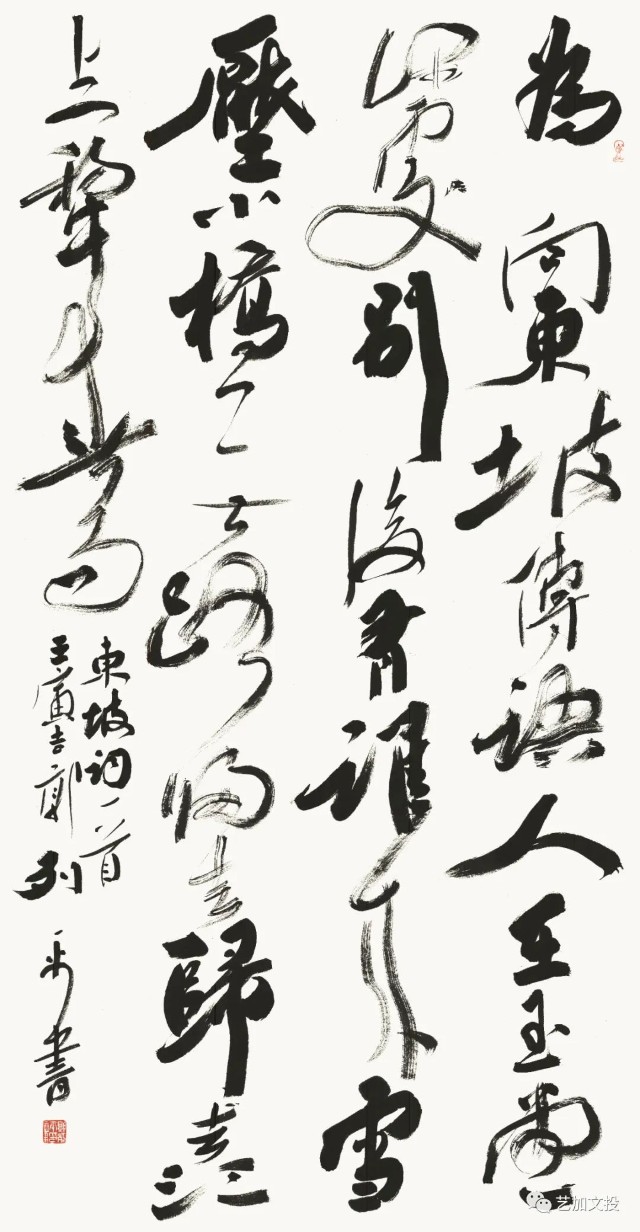 為向東坡傳語人在玉堂
深處別後有誰來雪
壓小橋無路歸去歸去江
上一犁春雨
東坡詞一首
壬寅吉郭列平書
艺加文投